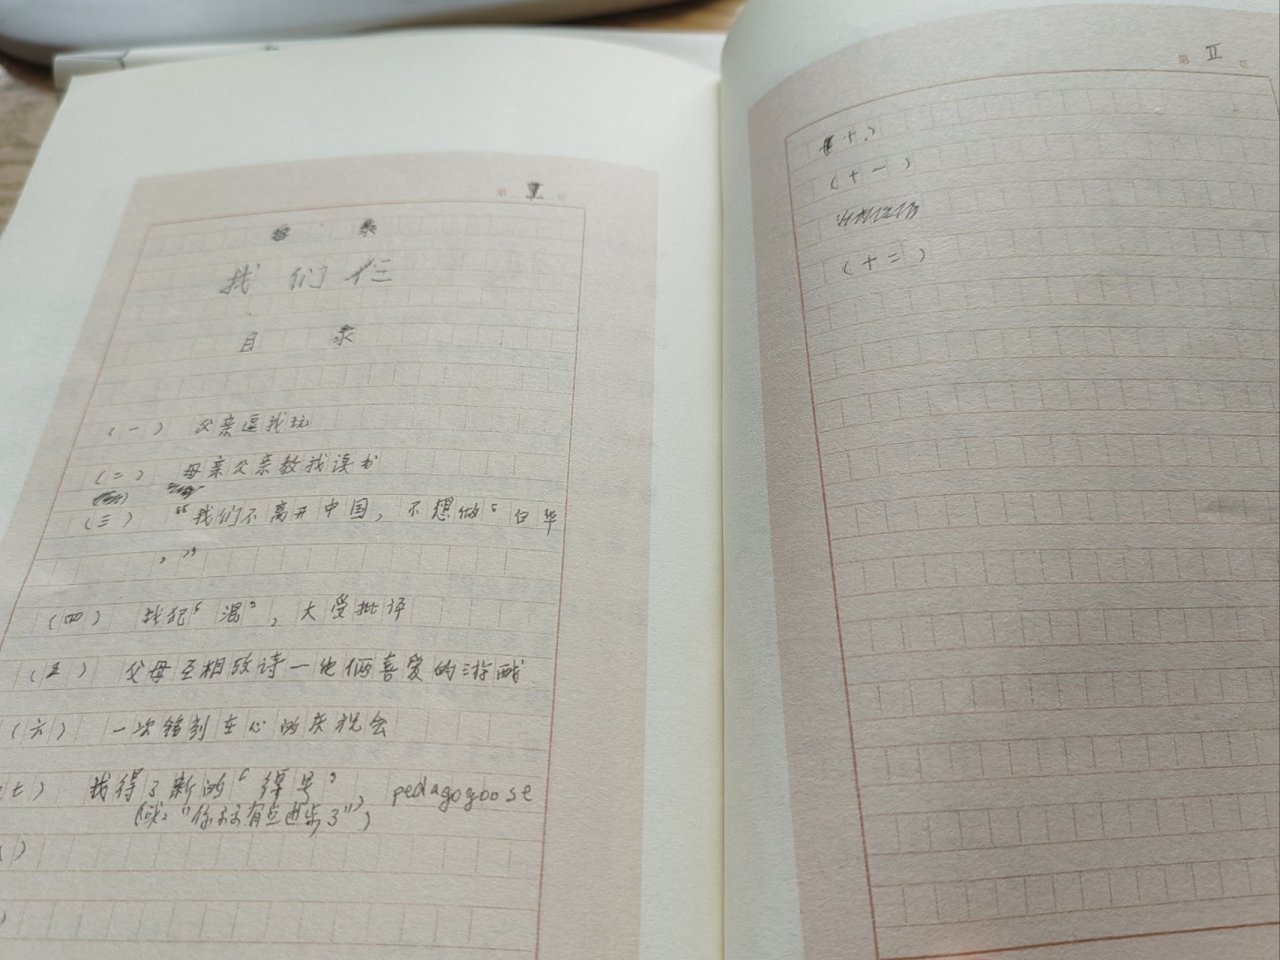 第 I 页
目 录
我 们 仨
目 录
(一) 父亲逗我玩
(二) 母亲父亲教我读书
(三) “我们不离开中国，不想做‘白华
’”
(四) 我犯‘混’，大受批评
(五) 父母互相改诗一他俩喜爱的游戏
(六) 一次铭刻在心的庆祝会
七) 我得了新的‘称号’，pedagogoose
(或：“你有点进步了”)
)
)
第 II 页
十)
(十一)
(十二)